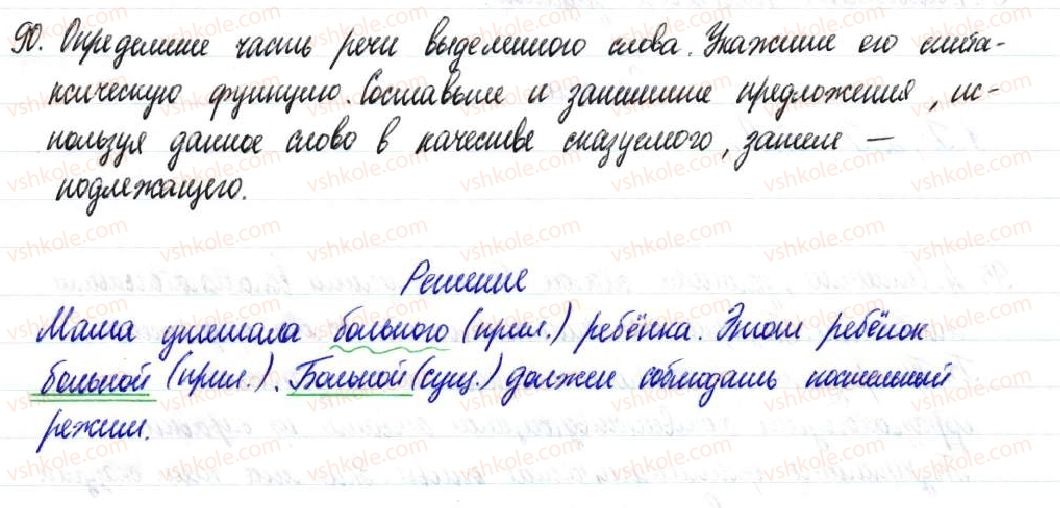 90. Определите часть речи выделенного слова. Укажите его синта-
ксическую функцию. Составьте и запишите предложения, ис-
пользуя данное слово в качестве сказуемого, затем —
подлежащего.
Решение
Мама утешала больного (прил.) ребёнка. Этот ребёнок
больной (прил.). Больной (сущ.) должен соблюдать постельный
режим.